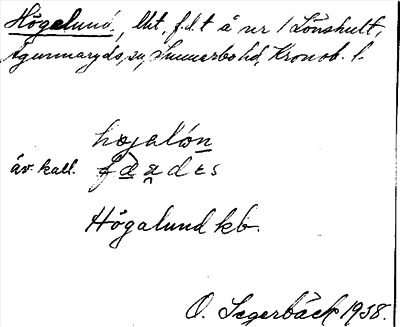 Högalund, lht, f.d.t å nr 1 Lönshult,
Agunnaryds, sn, Sunnerbo hd, Kronob. l.
højalón
äv. kall. fɑ̲ndes
Högalund kb.
O. Segerbäck 1938.